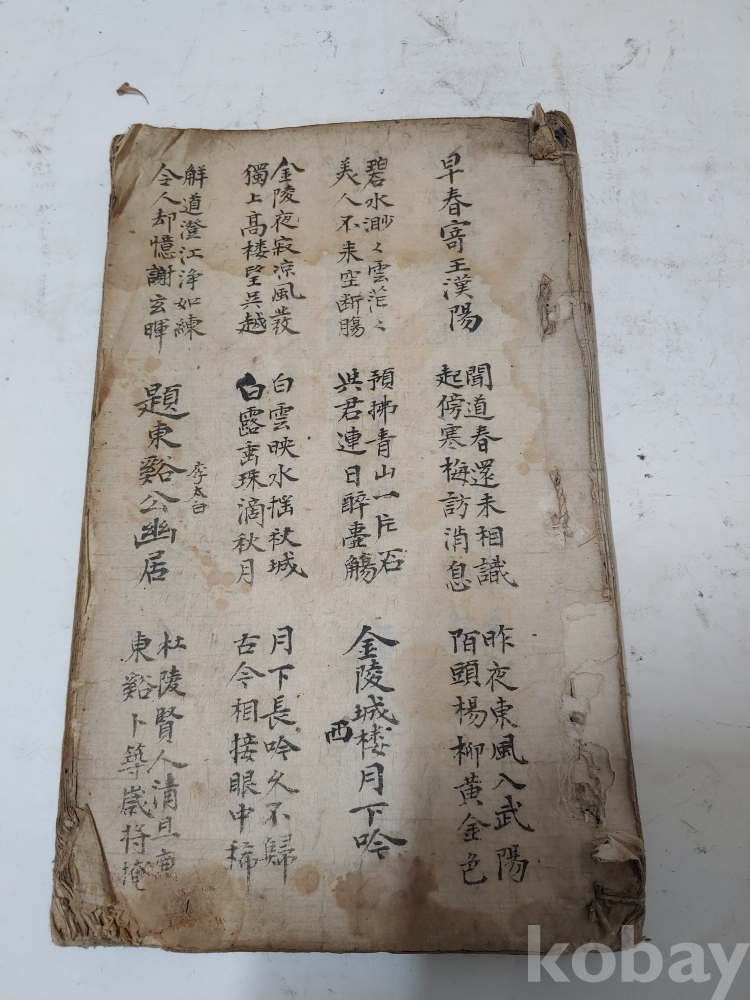 早春寄王漢陽
聞道春還未相識
起傍寒梅訪消息
昨夜東風入武陽
陌頭楊柳黃金色
碧水渺々雲茫々
美人不来空断膓
預拂青山一片石
共君連日醉壺觴
金陵城西楼月下吟
金陵夜寂凉風發
獨上高楼望吳越
白雲映水搖秋城
白露垂珠滴秋月
月下長吟久不歸
古今相接眼中稀
解道澄江淨如練
令人却憶謝玄暉
題東谿公幽居
李太白
杜陵賢人清且
東谿卜築歲將
kobay